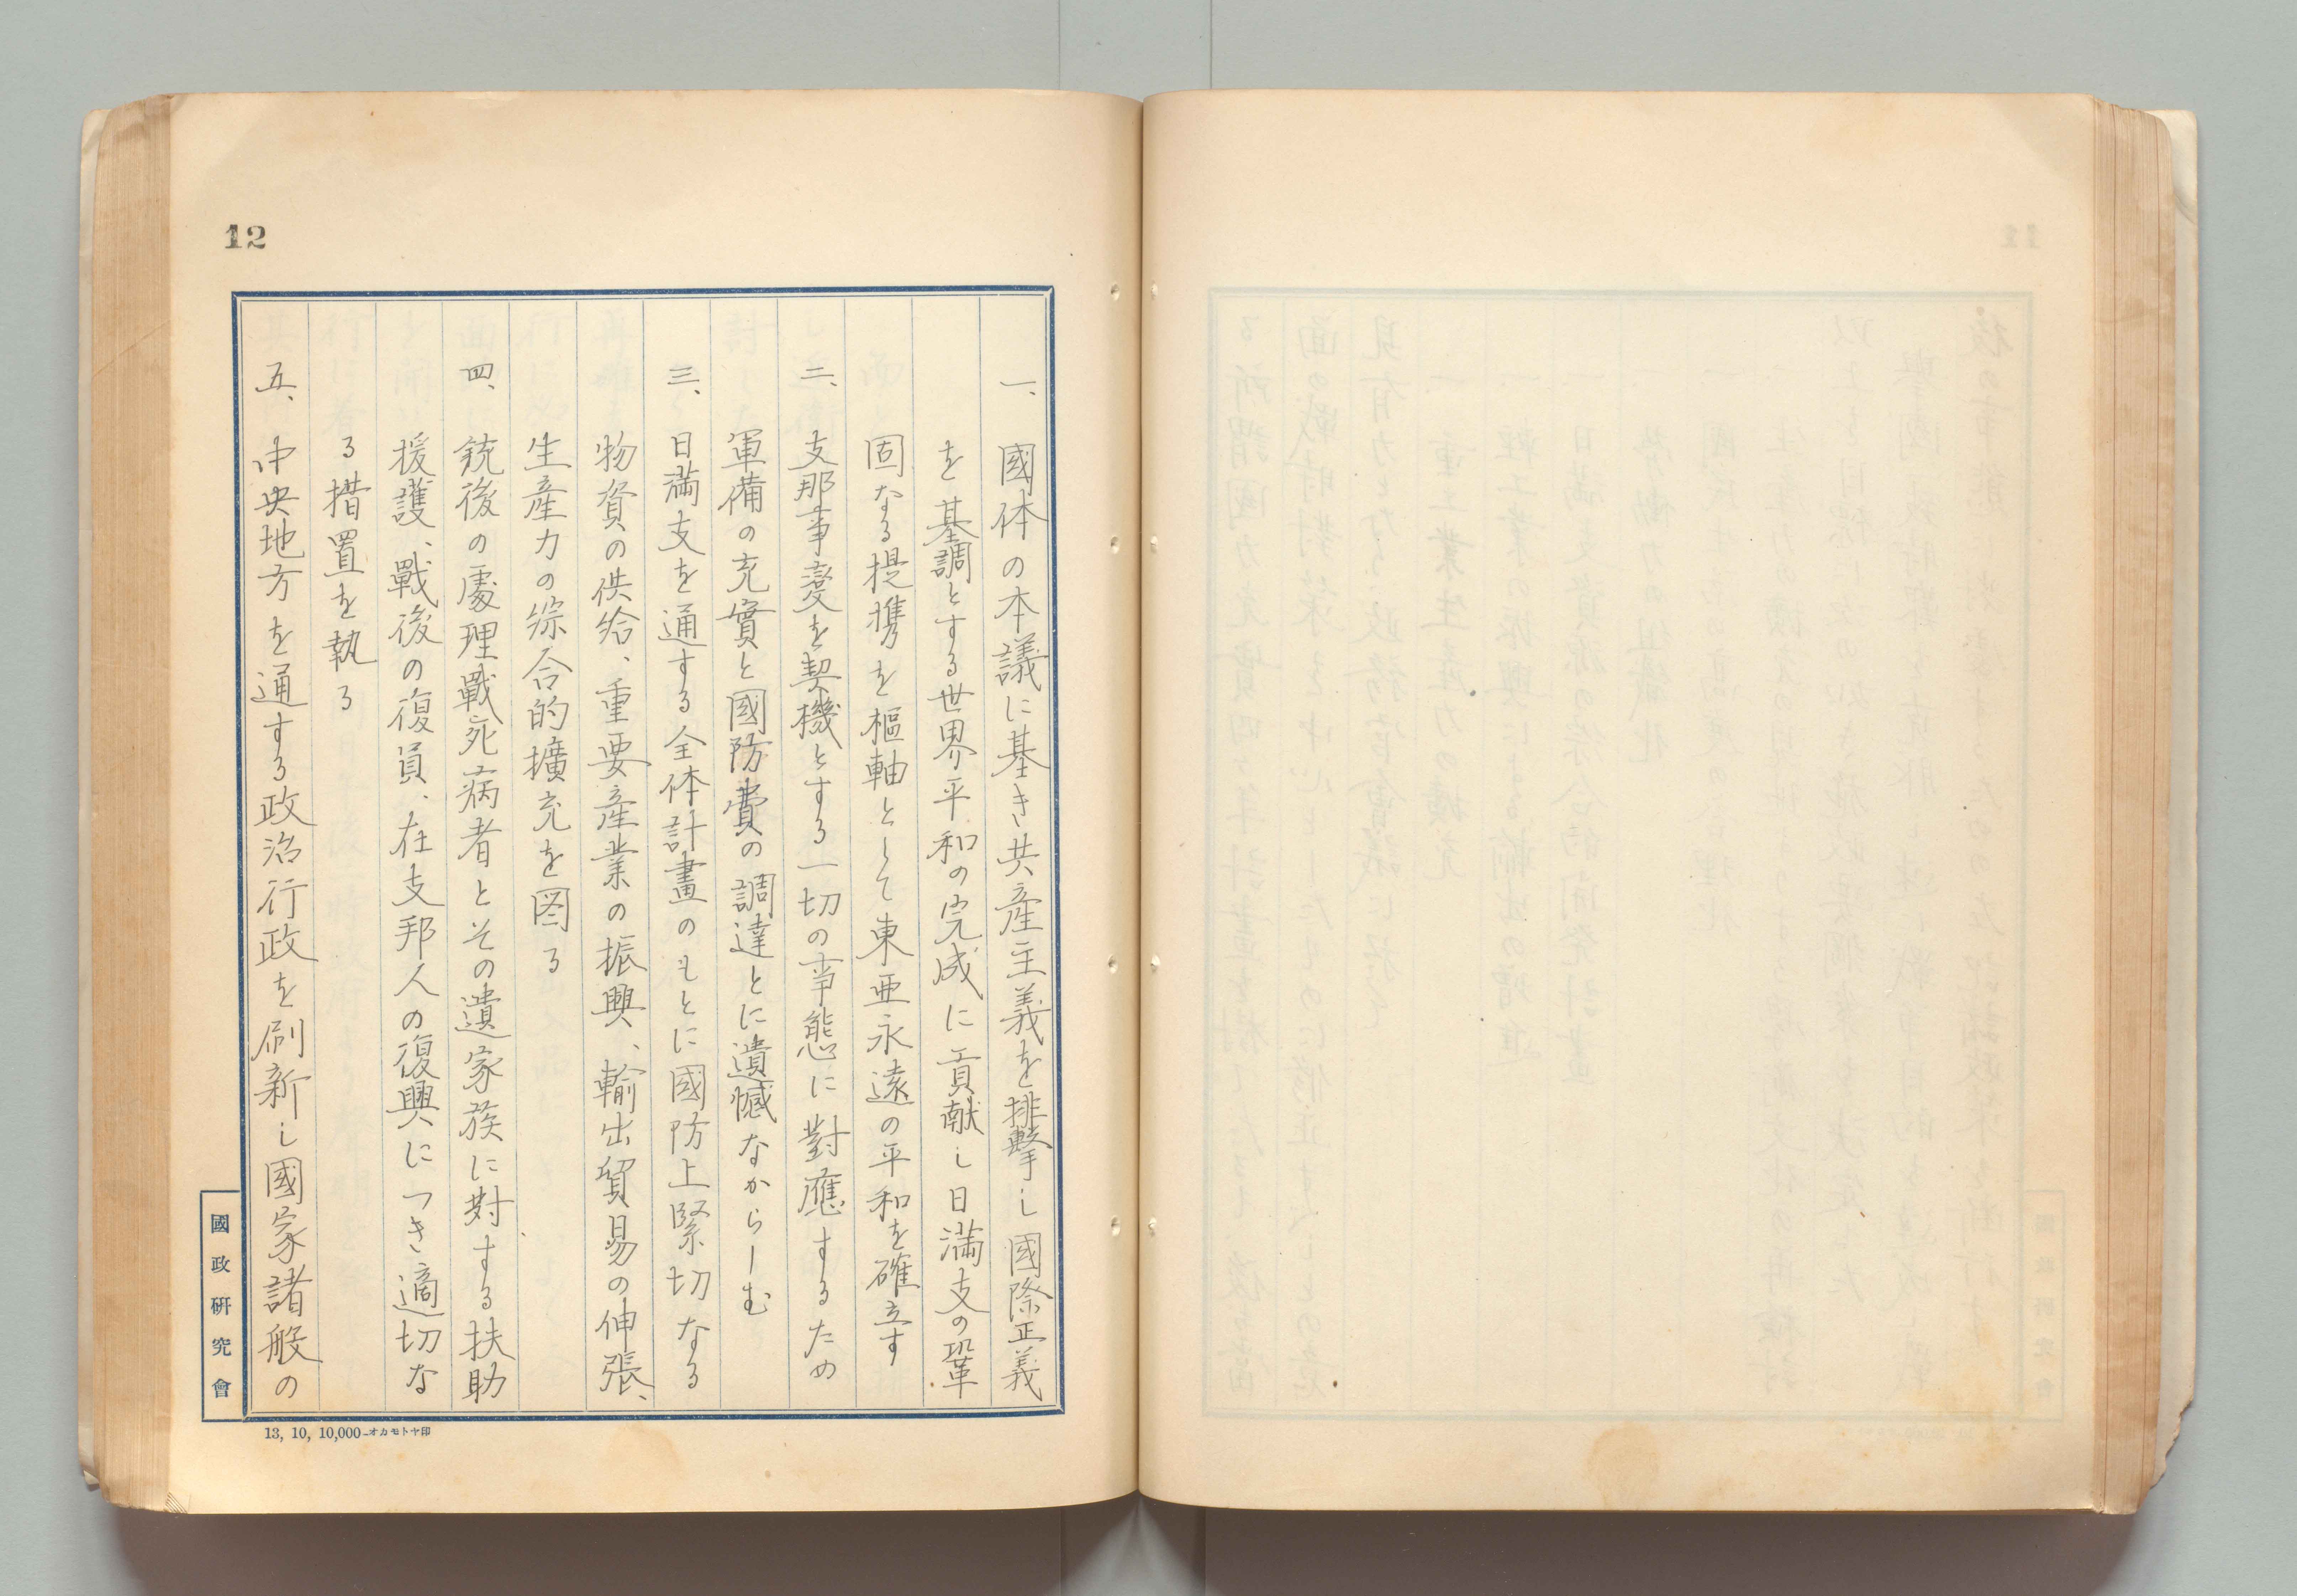 12
一、國体の本議に基き共産主義を排擊し國際正義
を基調とする世界平和の完成に貢献し日満支の鞏
固なる提携を樞軸として東亜永遠の平和を確立す
二、支那事變を契機とする一切の事態に對應するため
軍備の充實と國防費の調達とに遺憾なからしむ
三、日満支を通する全体計畫のもとに國防上緊切なる
物資の供給、重要産業の振興、輸出貿易の伸張、
生産力の綜合的擴充を図る
四、銃後の處理戰死病者とその遺家族に對する扶助
援護、戰後の復員、在支邦人の復興につき適切な
る措置を執る
五、中央地方を通する政治行政を刷新し國家諸般の
國政硏究會
13, 10, 10,000-オカモトヤ印